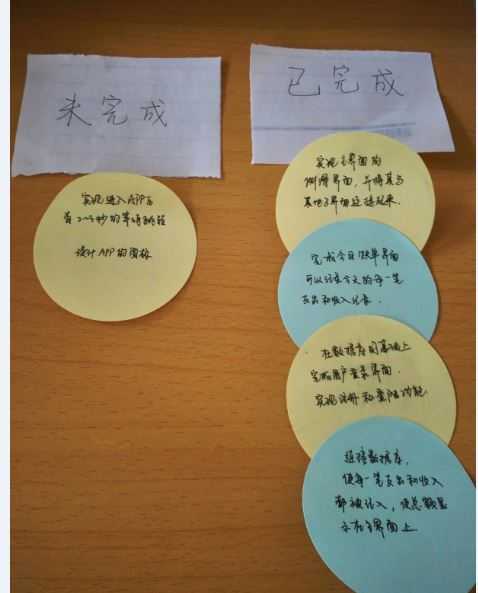 未完成
已完成
实现进入APP后
有2~3秒的等待跳转
设计APP的图标
实现主界面的
侧滑界面，并将其与
其他子界面连接起来.
完成今日账单界面
可以记录今天的每一笔
支出和收入记录.
在数据库的基础上
完成用户登录界面.
实现注册和登陆功能
连接数据库,
使每一笔支出和收入
都被记入，使总额显
示在主界面上